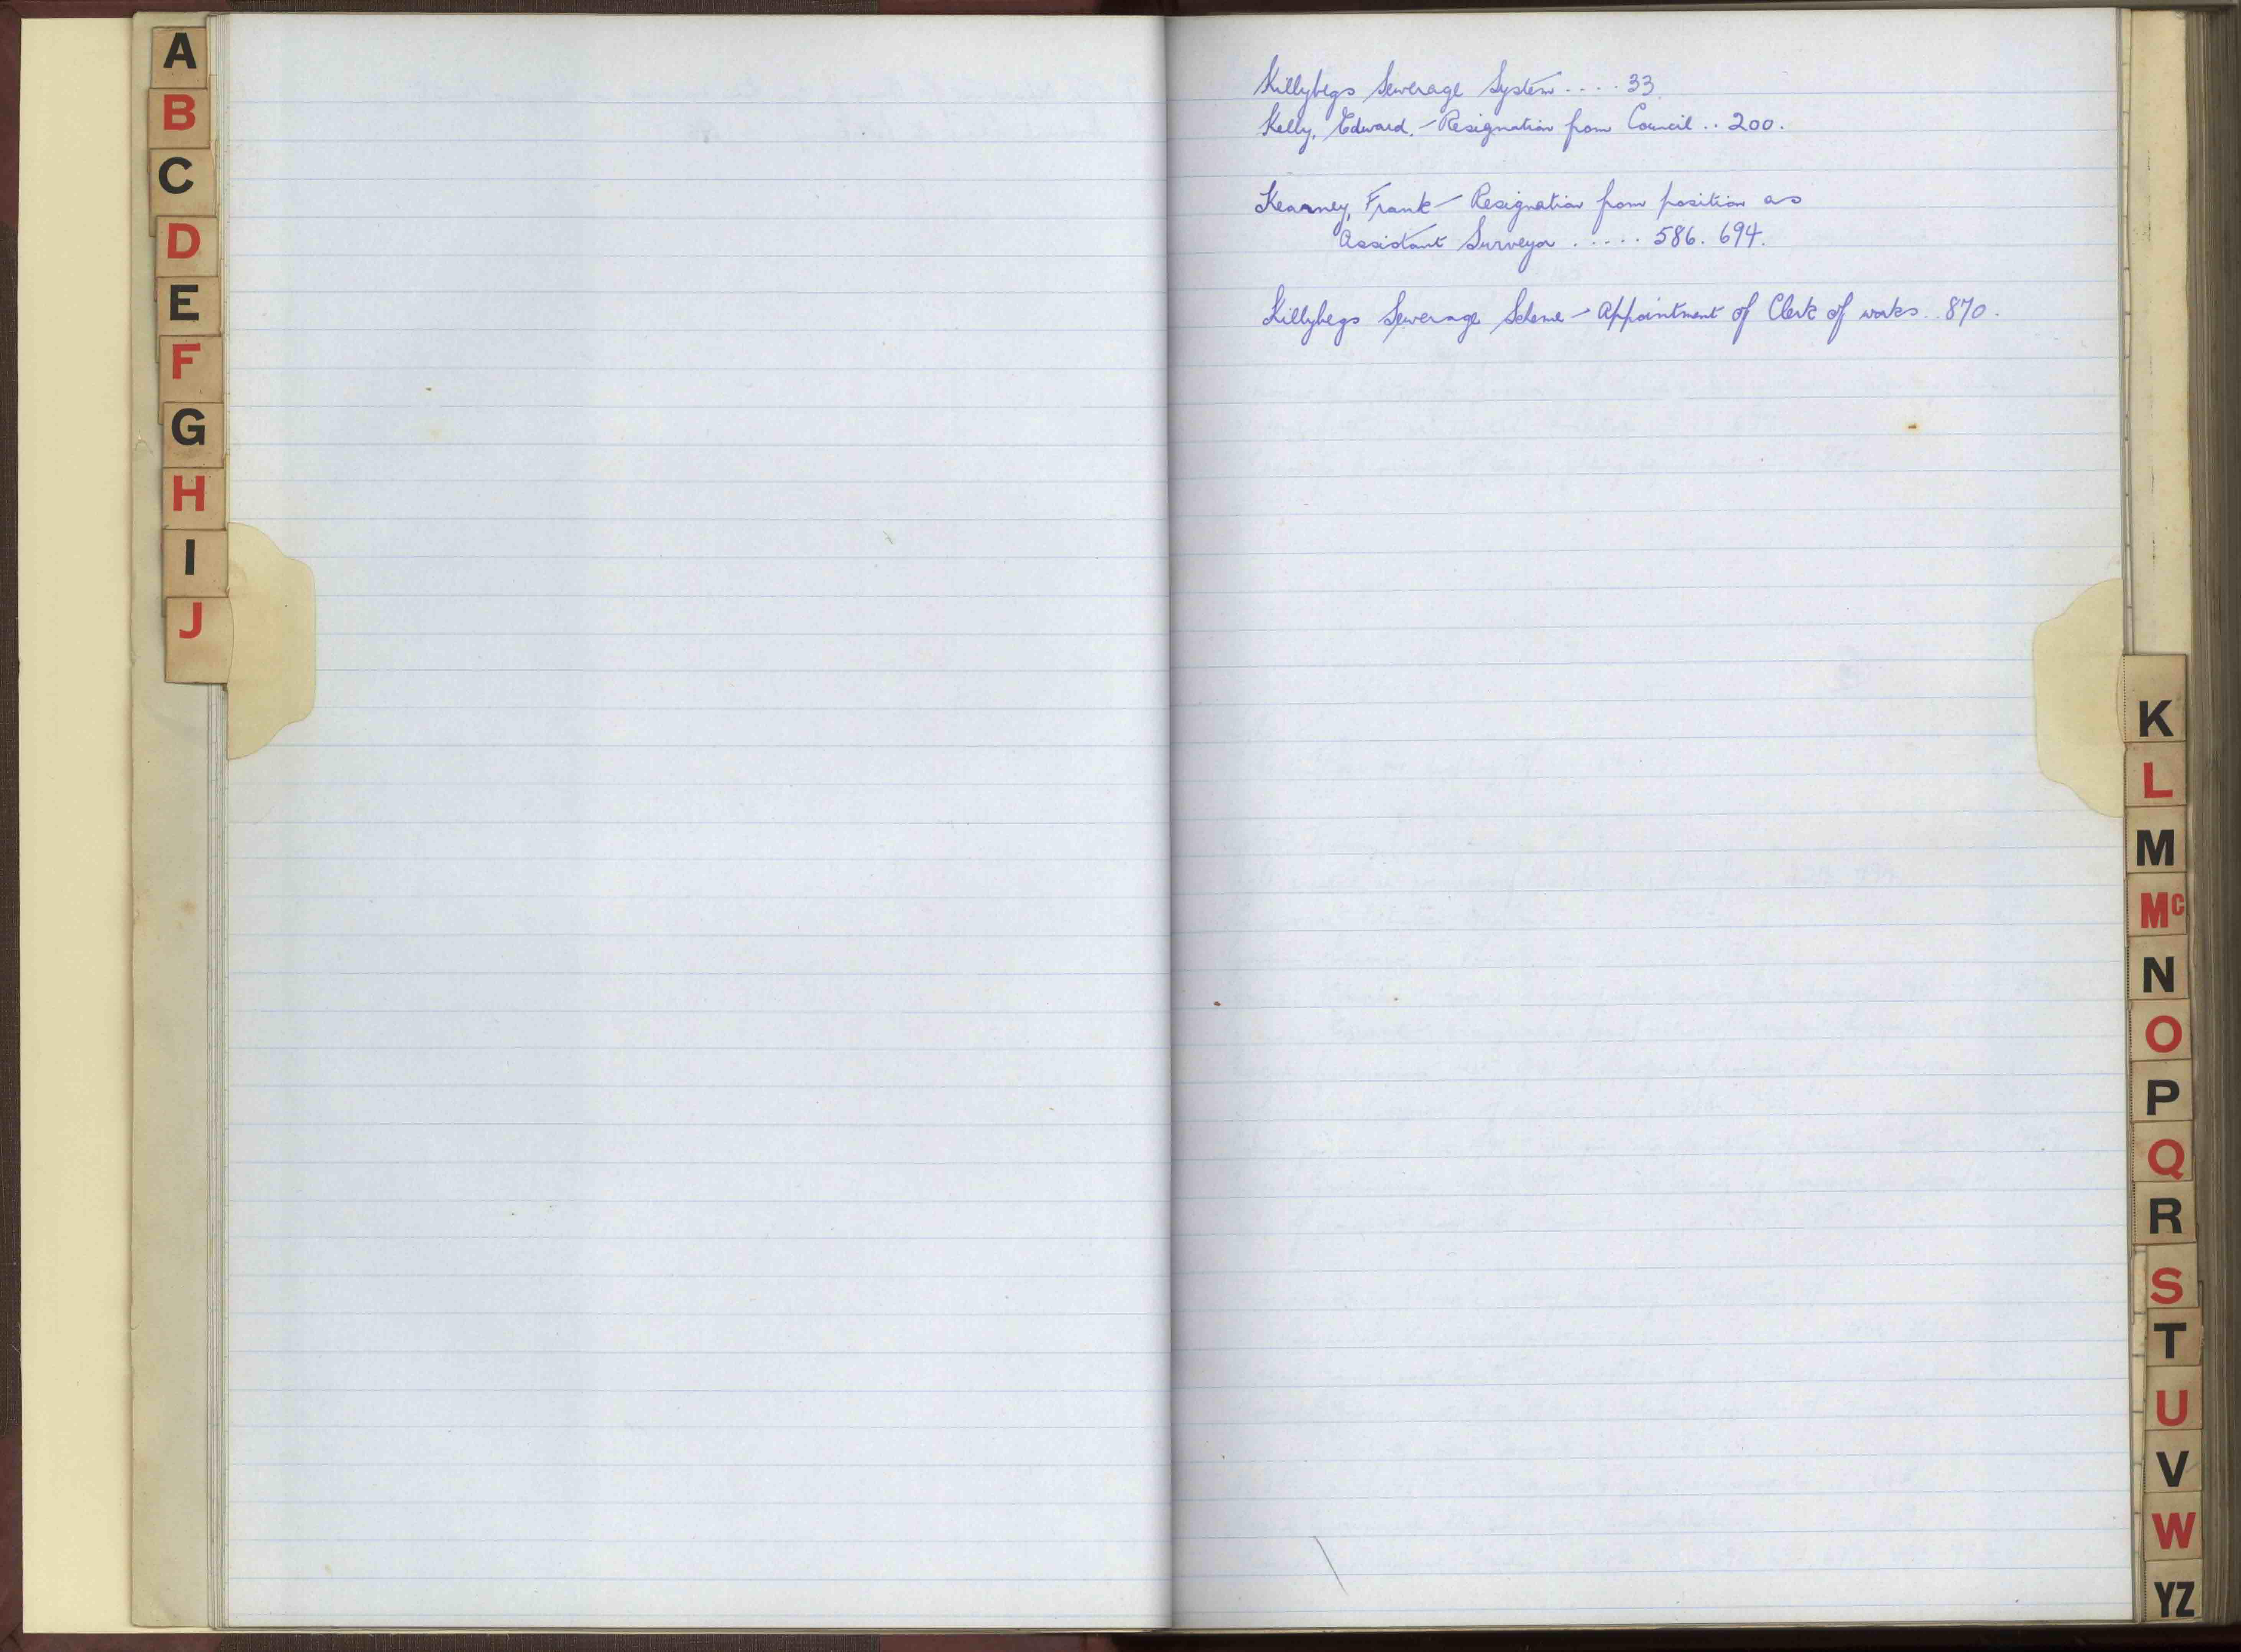 A
B
C
D
E
F
G
H
I
J
Killybegs Sewerage System .... 33
Kelly, Edward. - Resignation from Council .. 200.
Kearney, Frank - Resignation from position as
Assistant Surveyor ..... 586. 694.
Killybegs Sewerage Scheme - Appointment of Clerk of works .. 870.
K
L
M
Mc
N
O
P
Q
R
S
T
U
V
W
YZ